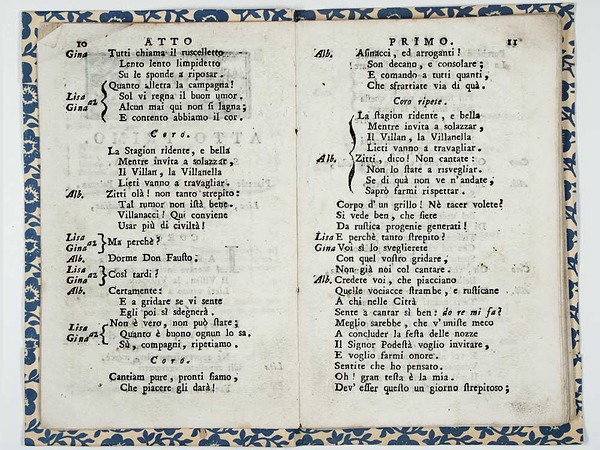 10 ATTO
Gina Tutti chiama il ruscelletto
Lento lento limpidetto
Su le sponde a riposar.
Lisa Gina a2 Quanto alletta la campagna!
Sol vi regna il buon umor.
Alcun mai qui non si lagna;
E contento abbiamo il cor.
Coro.
La Stagion ridente, e bella
Mentre invita a solazzar,
Il Villan, la Villanella
Lieti vanno a travagliar.
Alb. Zitti olà! non tanto strepito:
Tal rumor non istà bene.
Villanacci! Qui conviene
Usar più di civiltà!
Lisa Gina a2 Ma perchè?
Alb. Dorme Don Fausto.
Lisa Gina a2 Così tardi?
Alb. Certamente:
E a gridare se vi sente
Egli poi si sdegnerà.
Lisa Gina a2 Non è vero, non può stare;
Quanto è buono ognun lo sa.
Sù, compagni, ripetiamo.
Coro.
Cantiam pure, pronti siamo,
Che piacere gli darà!
PRIMO. 11
Alb. Asinacci, ed arroganti!
Son decano, e consolare;
E comando a tutti quanti,
Che sfrattiate via di quà.
Coro ripete.
La stagion ridente, e bella
Mentre invita a solazzar,
Il Villan, la Villanella
Lieti vanno a travagliar.
Alb. Zitti, dico! Non cantate:
Non lo state a risvegliar.
Se di quà non ve n'andate,
Saprò farmi rispettar.
Corpo d'un grillo! Nè tacer volete?
Si vede ben, che siete
Da rustica progenie generati!
Lisa E perchè tanto strepito?
Gina Voi sì lo sveglierete
Con quel vostro gridare,
Non già noi col cantare.
Alb. Credete voi, che piacciano
Quelle vociacce strambe, e rusticane
A chi nelle Città
Sente a cantar sì ben: do re mi fa?
Meglio sarebbe, che v'uniste meco
A concluder la festa delle nozze
Il Signor Podestà voglio invitare,
E voglio farmi onore.
Sentite che ho pensato.
Oh! gran testa è la mia.
Dev' esser questo un giorno strepitoso;